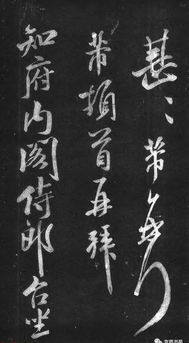 甚〻芾
芾頓首再拜
知府内閣侍郎台坐